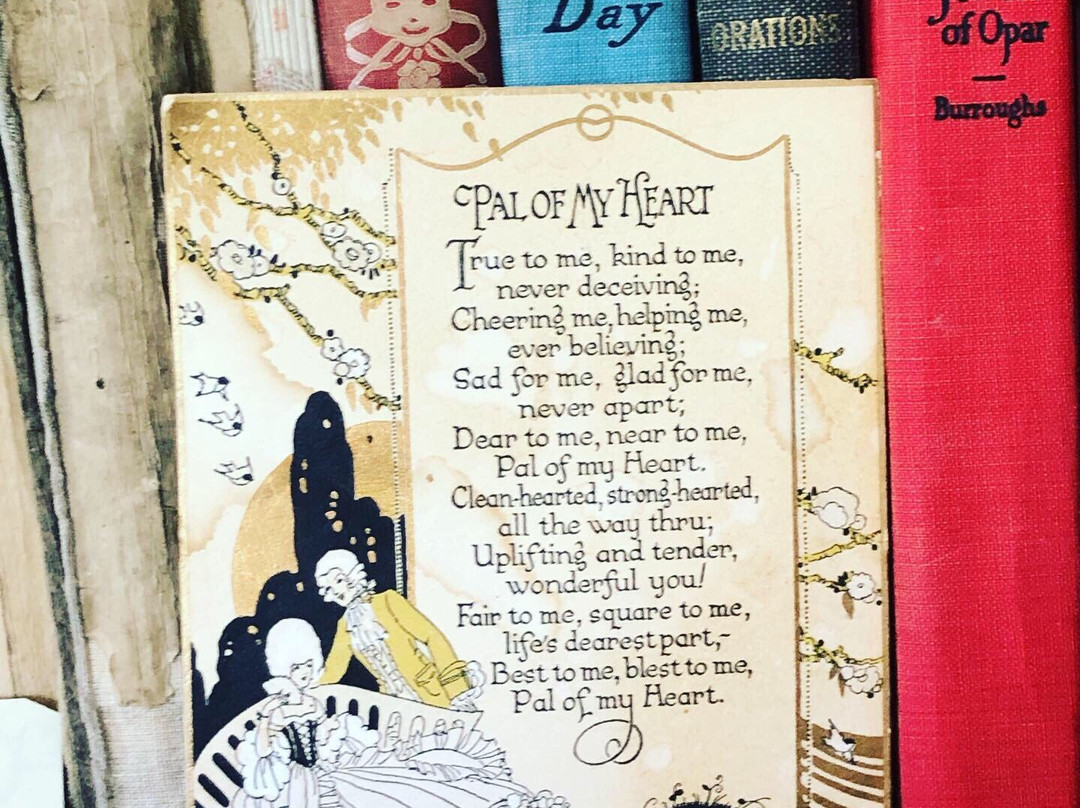 Day
ORATIONS
of Opar
Burroughs
PAL OF MY HEART
True to me, kind to me,
never deceiving;
Cheering me, helping me,
ever believing;
Sad for me, glad for me,
never apart;
Dear to me, near to me,
Pal of my Heart.
Clean-hearted, strong-hearted,
all the way thru;
Uplifting and tender,
wonderful you!
Fair to me, square to me,
life's dearest part,~
Best to me, blest to me,
Pal of my Heart.